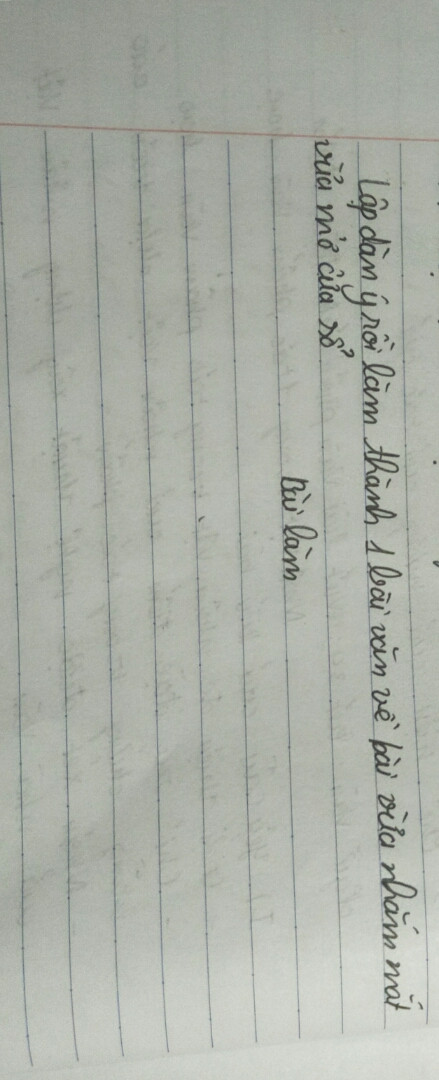 Lập dàn ý rồi làm thành 1 bài văn về bài vừa nhắm mắt
vừa mở cửa sổ
Bài làm